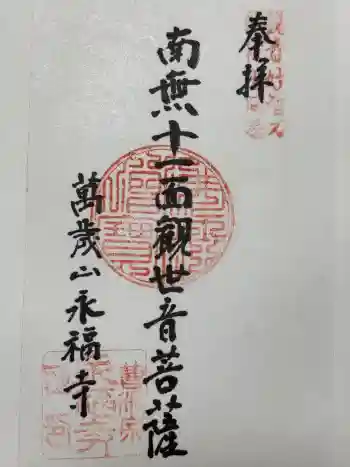 奉拝
南無十一面観世音菩薩
萬歳山永福寺